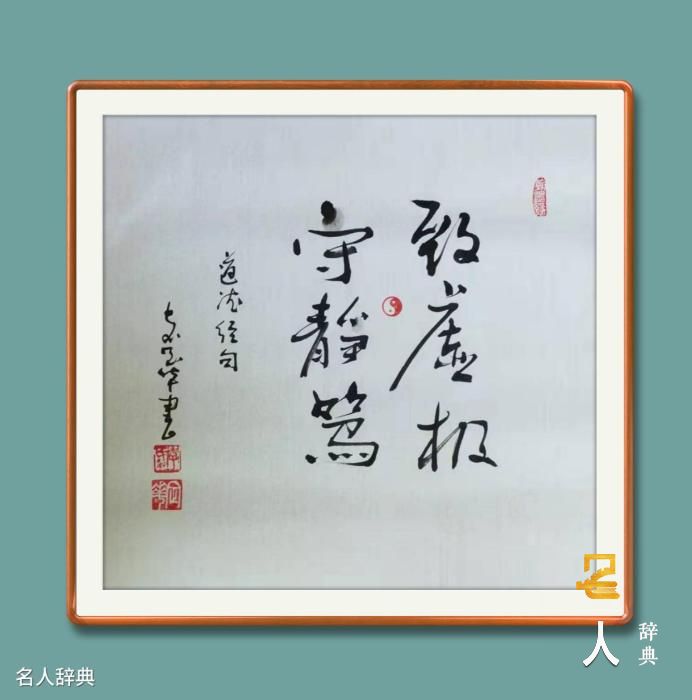 致虚极
守静笃
道德经句
书
名人
辞典
名人辞典